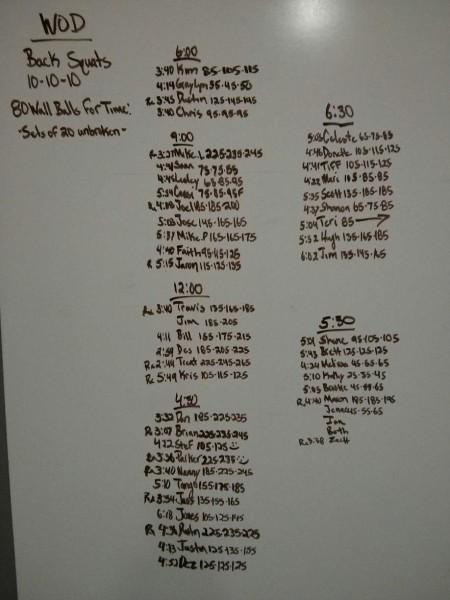 WOD
Back Squats
10-10-10
80 Wall Balls For Time:
-Sets of 20 unbroken-
6:00
3:40 Kim 85-105-115
4:14 Gaylyn 35-45-50
Rx 3:45 Dustin 125-145-145
3:40 Chris 95-95-95
9:00
Rx 3:27 Mike L 225-235-245
4:44 Sean 75-75-85
4:45 Lesley 65-85-95
5:34 Cassi 75-85-95
Rx 4:08 Joel 185-185-200
5:08 Jose 145-165-165
5:37 Mike P 165-165-175
4:40 Faith 95-95-125
Rx 5:15 Jaron 115-125-135
12:00
Rx 3:40 Travis 135-165-185
Jim 185-205
4:11 Bill 155-175-215
2:59 Des 185-205-225
Rx 2:44 Trent 225-245-265
Rx 5:49 Kris 105-115-125
4:30
3:32 Ron 185-225-235
Rx 3:07 Brian 225-235-245
4:22 Stef 105-125
Rx 3:36 Parker 225-235
Rx 3:40 Manny 185-225-245
5:10 Tango 155-175-185
Rx 3:34 Jass 135-155-165
6:18 James 105-125-145
Rx 4:36 225-235-225
4:13 Justin 125-135-155
4:52 Dez 125-125-125
6:30
5:03 Celeste 65-75-85
4:46 Donette 105-115-125
4:41 Tiff 105-115-125
4:22 Marc 105-85-85
5:35 Scott 135-185-185
4:37 Shanon 65-75-85
5:04 Teri 85
5:52 Hugh 135-165-185
6:02 Jim 135-145-165
5:30
5:01 Shane 95-105-105
5:43 Brett 125-125-125
4:24 Melissa 45-65-65
3:10 Kathy 25-35-45
5:05 Brooke 45-55-65
Rx 4:40 Mason 185-185-195
45-55-65
Jon
Beth
Rx 3:38 Zach